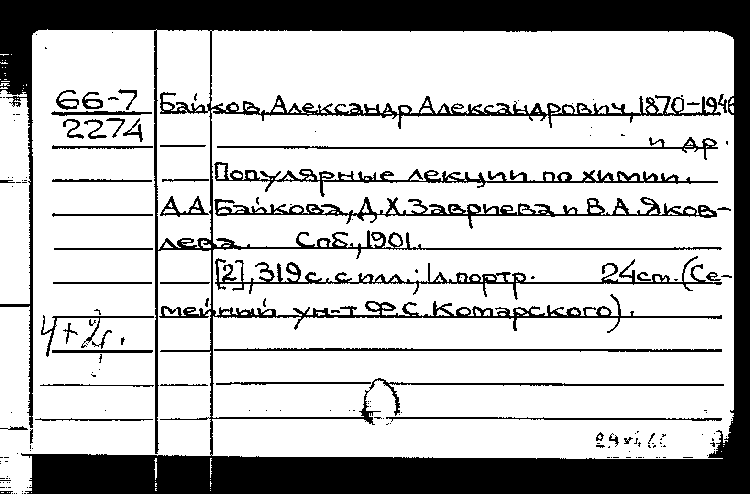 66-7 Байков, Александр Александрович, 1870-1946
2274
и др.
Популярные лекции по химии.
А.А.Байкова, Д.Х.Завриева и В.А.Яков-
лева. Спб., 1901.
[2], 319с. с илл.; 1л.портр. 24см. (Се-
мейный ун-т Ф.С.Комарского).